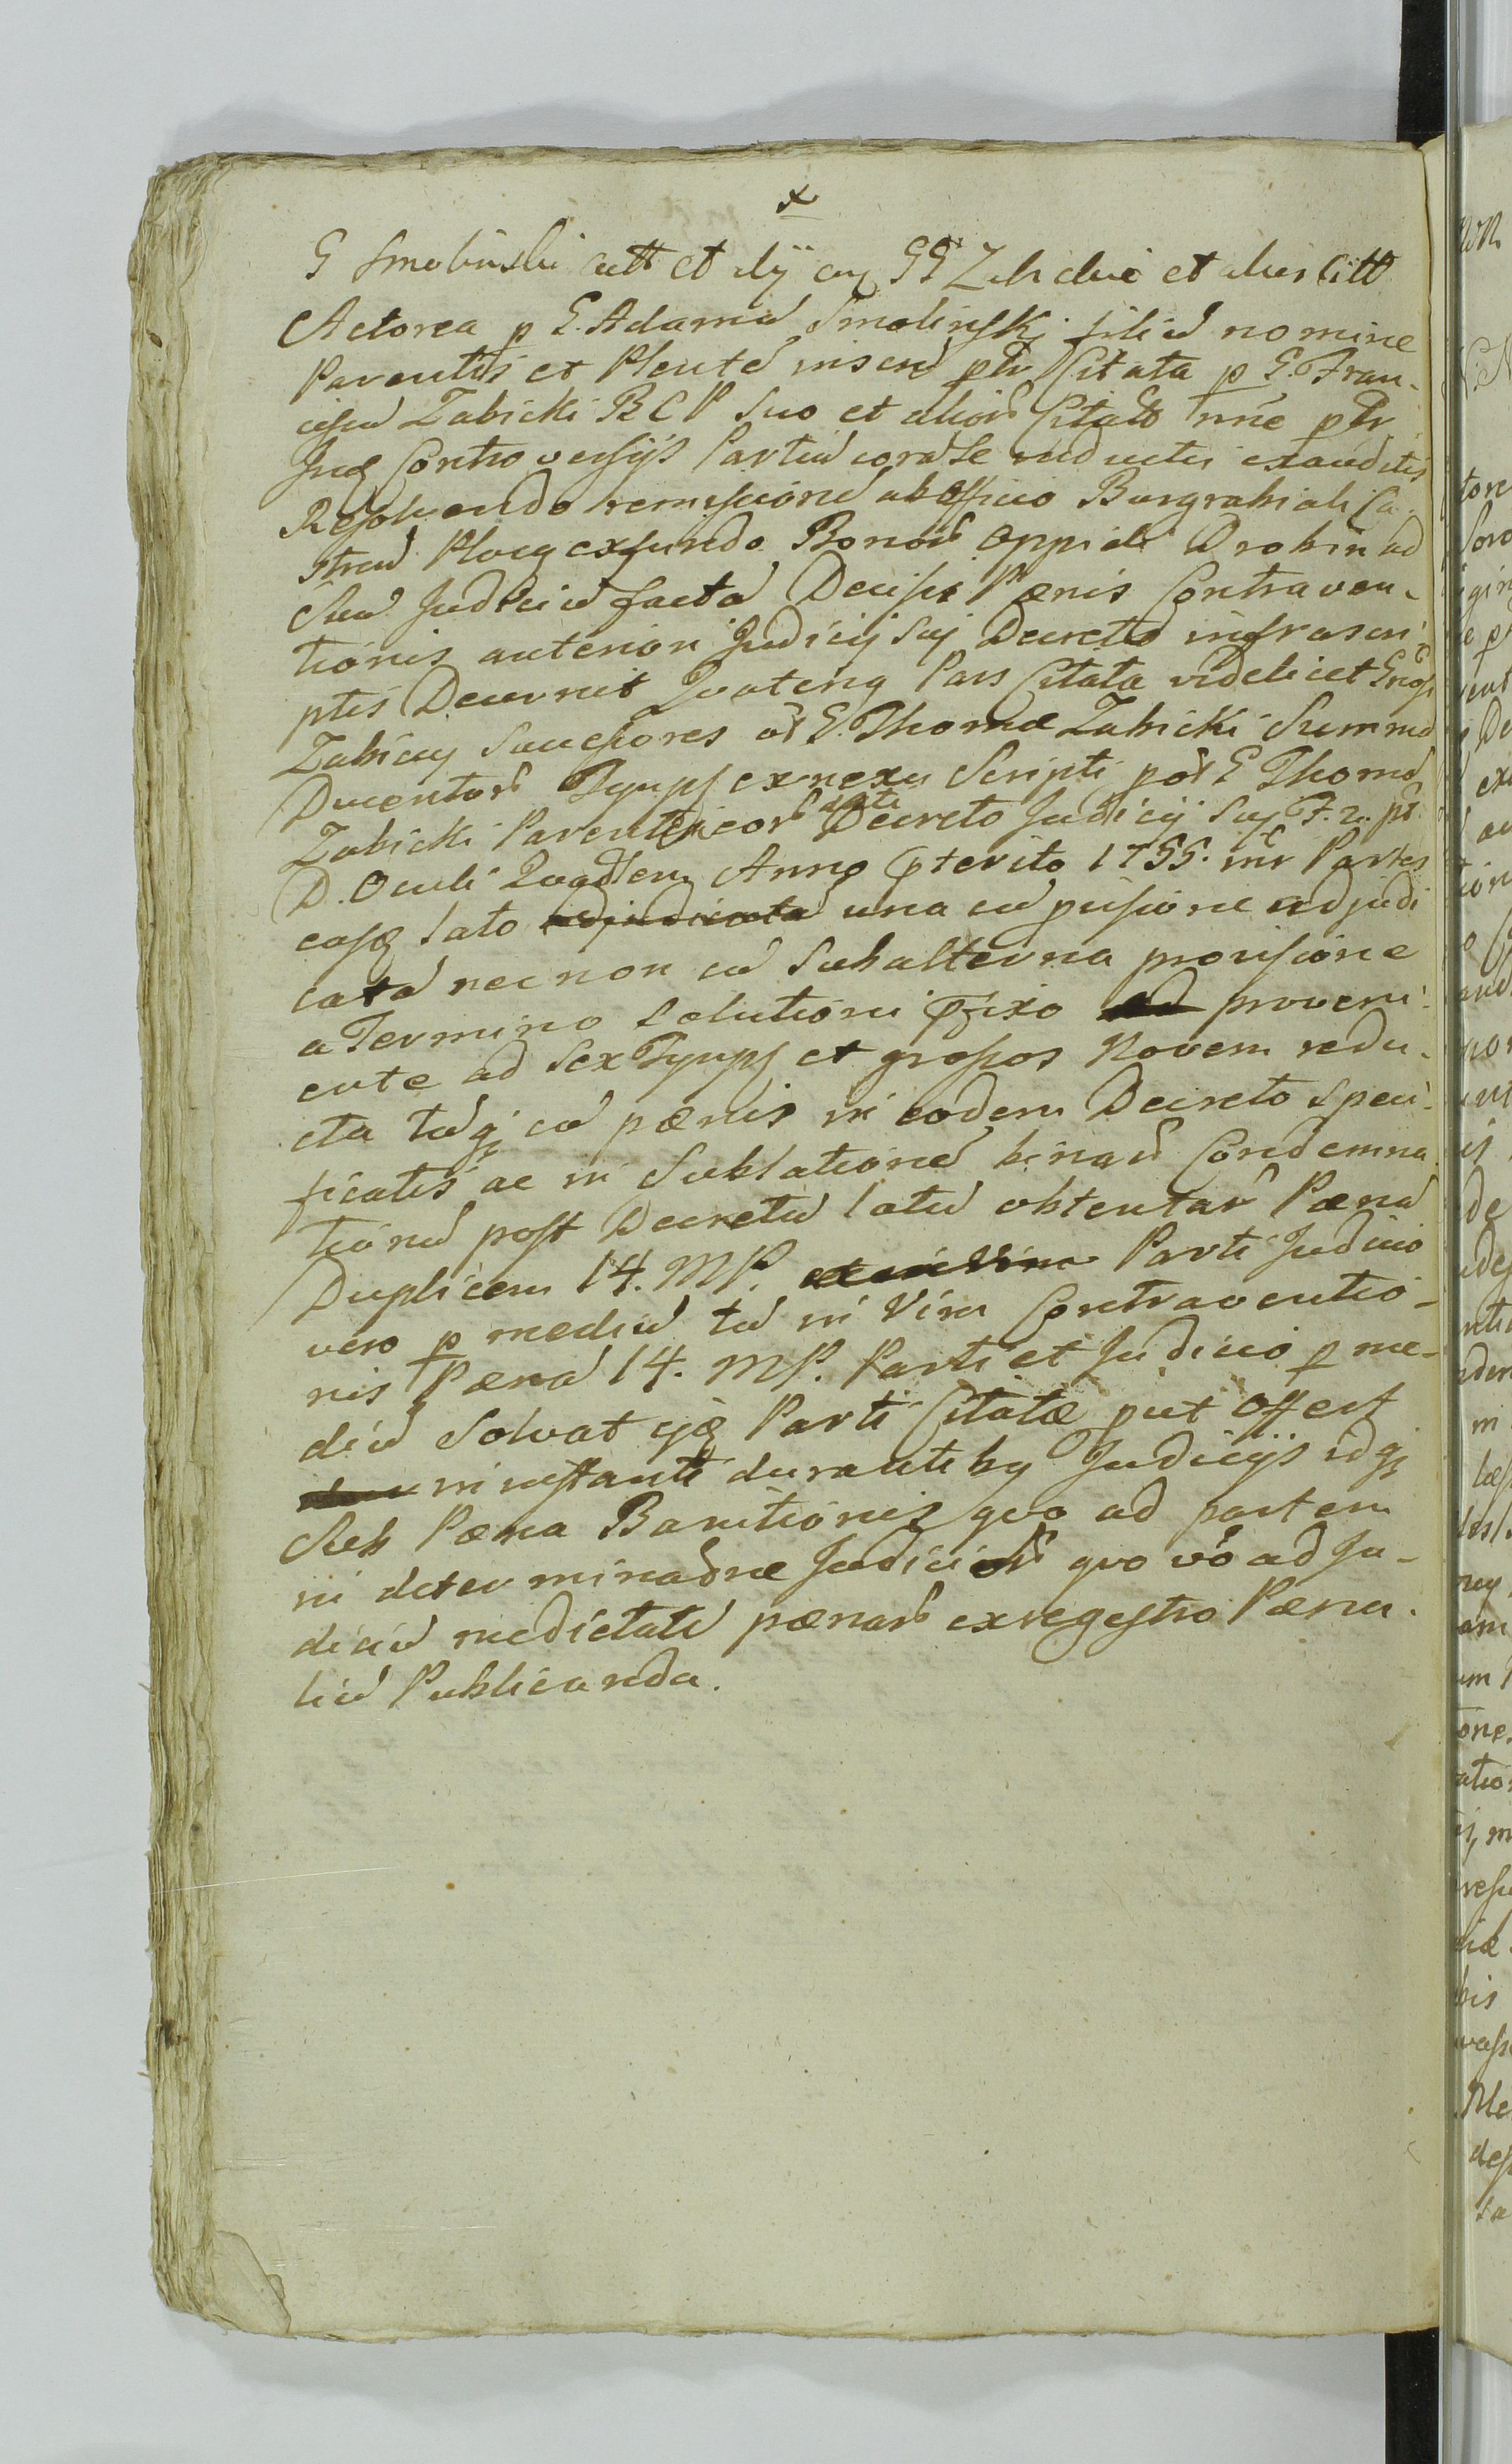 x
G Smolinski actt et alij cuȝ GG Zabickie et alies Citt
Actorea p G. Adamū Smolinski filiū nomine
Parentis et Plentē inscrd ptr Citata p G. Fran-
ciscū Zabicki BCP Suo et aliorū Citator nñe ptr
Judȝ Controversijs Partiū corā Se inductis exauditis
Resolvendo remissionē ab officio Burgrabiali Ca-
streń Plocȝ ex fundo Bonorū Oppidi Drobin ad
Suū Judiciū factā Decisis Pænis Contraven-
tionis anteriori Judicij Suj Decreto infrascri-
ptis Decernit Quatenȝ Pars Citata videlicet Gnosi
Zabiccy Sucessores ol G. Thomæ Zabicki Summā
Ducentorū Tynpf ex nexu Scripti p ol G Thomā
Zabicki Parentē eorū dati Decreto Judicij Suj F. 2. pt
D. Oculi Quadrem Anno pterito 1755. intr Partes
easȝ lato adjudicatā una cū pvisione adjudi
catā nec non cū Subalterna provisione
a Termino Solutioni pfixo ad proveni-
ente ad Sex Tynpf et grossos Novem redu-
cta tūqȝ cū pænis in eodem Decreto speci-
ficatis ac in Sublationē binarū Condemna
tionū post Decretū latū obtentarū Pænā
Duplicem 14. MP. Parti Judicio
vero p mediū tū in Vim Contraventio-
nis Pænā 14. MP. Parti et Judicio p me-
diū Solvat ejȝ Parti Citatæ put Offert
in instanti durantibȝ Judicijs idqȝ
Sub Pæna Banitionis quo ad partem
in determinadne Judicior quo vō ad Ju-
diciū medietatē pænarū ex regestro Pæna-
liū Publicanda.